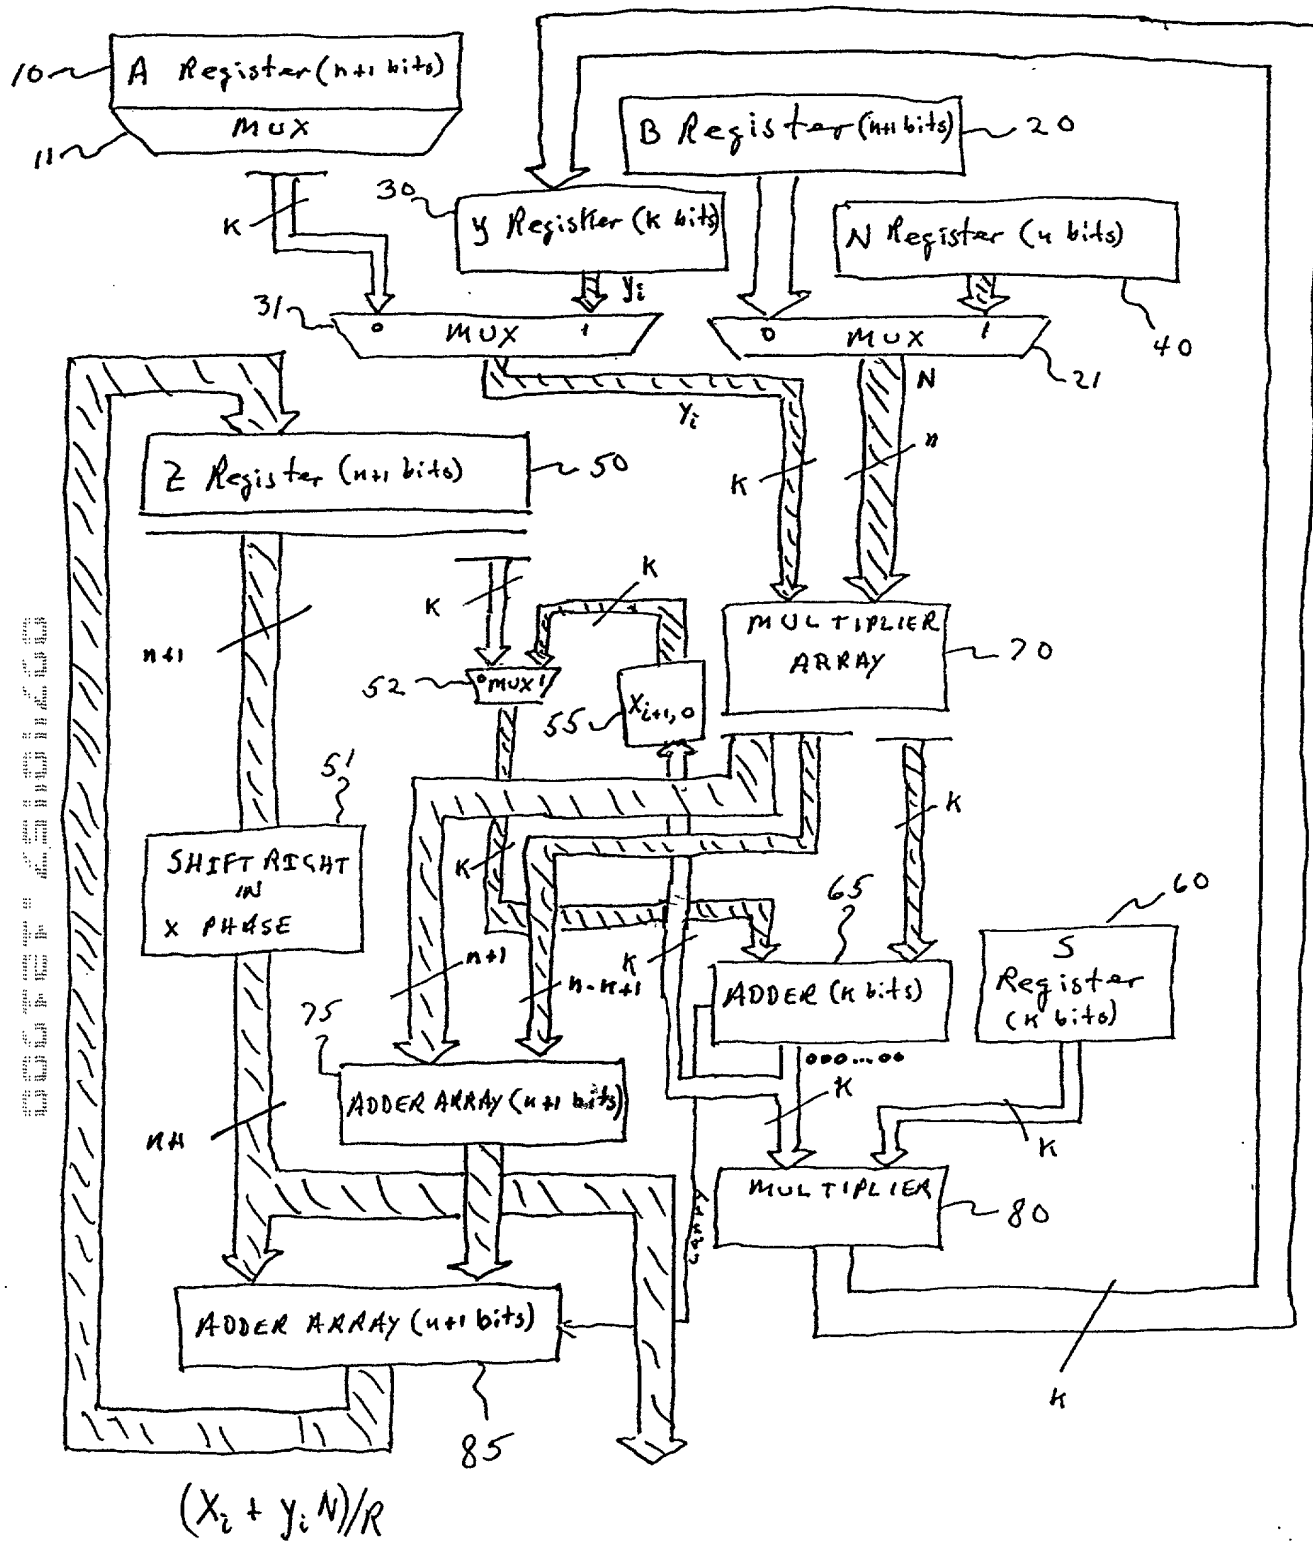 10
A Register (n+1 bits)
MUX
11
B Register (n+1 bits)
20
30
y Register (k bits)
N Register (n bits)
K
yi
31
0 MUX 1
0 MUX 1
40
21
N
yi
n
K
Z Register (n+1 bits)
50
K
K
n+1
MULTIPLIER
ARRAY
70
52
0 MUX 1
55
Xi+1,0
51
K
K
SHIFT RIGHT
IN
X PHASE
65
60
n+1
K
n-k+1
ADDER (k bits)
S
Register
(k bits)
75
000...00
ADDER ARRAY (n+1 bits)
K
K
n+1
MULTIPLIER
80
ADDER ARRAY (n+1 bits)
85
K
(Xi + yi N)/R